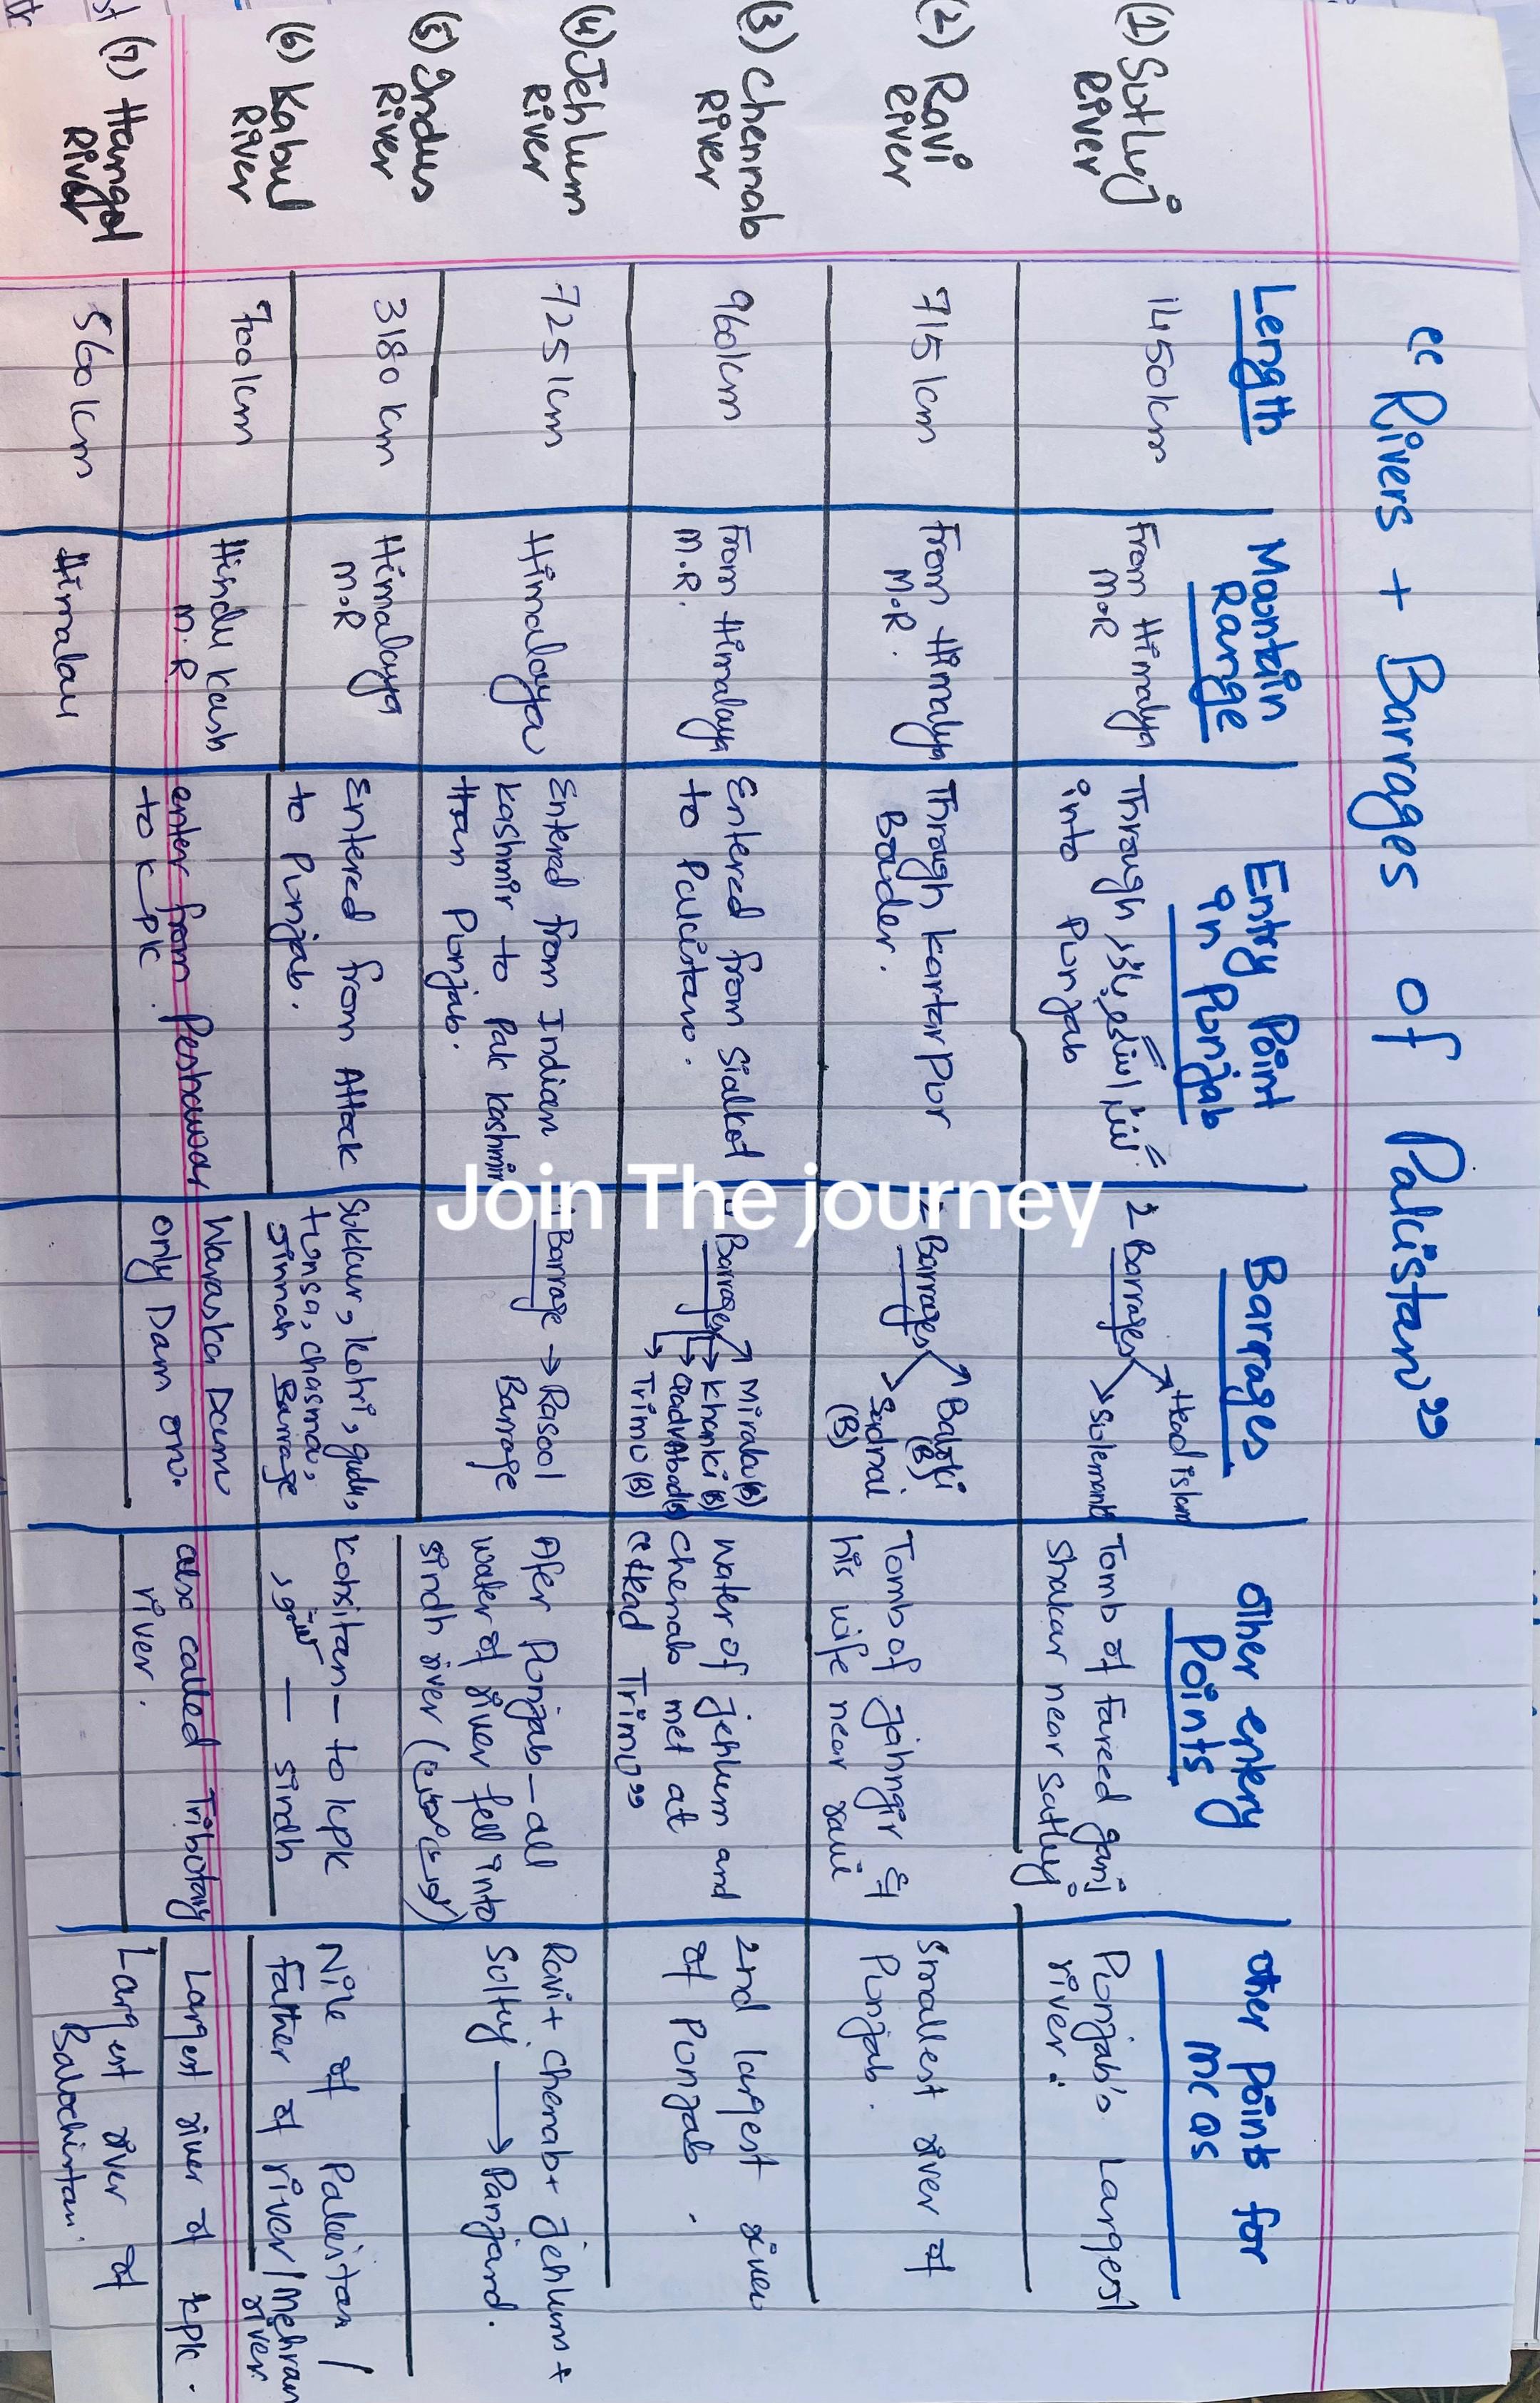 “ Rivers + Barrages of Pakistan”
Length
Mountain
Range
Entry Point
in Punjab
Barrages
Other entery
Points
Other Points for
MCQS
(1) Sutlej
River
1450km
From Himalya
M.R
Through
into Punjab
2 Barrages
Head islam
Sulemanki
Tomb of fareed ganj
Shakar near Sutlej
Punjab's Largest
river.
(2) Ravi
River
715km
From Himalya
M.R.
Thraogh Kartar Pur
Boader.
Barrages
Baloki
(B)
Sidnai
(B)
Tomb of jahngir &
his wife near ravi
Smallest river of
Punjab.
(3) Chennab
River
960km
From Himalaya
M.R.
Entered from Sialkot
to Pakistan.
Barrages
Mirala(B)
Khanki(B)
QadirAbad(B)
Trimu(B)
Water of jehlum and
chenab met at
“Head Trimu”
2nd largest river
of Punjab.
(4) Jehlum
River
725km
Himalaya
Entered from Indian
Kashmir to Pak Kashmir
than Punjab.
Barrage → Rasool
Barrage
Afer Punjab – all
water of river fell into
Sindh river
Ravi + Chenab + Jehlum +
Sutlej → Panjand.
(5) Indus
River
3180 km
Himalaya
M.R
Entered from Attock
to Punjab.
Sukkur, Kotri, gudu,
tunsa, chasma,
Jinnah Barrage
Kohsitan – to kpk
— Sindh
Nile of Pakistan /
father of river/Mehran
river
(6) Kabul
River
700km
Hindu Kash
M.R
enter from Peshawar
to KPK.
Waraska Dam
only Dam on.
also called Tributary
river.
Largest river of kpk.
(7) Hangol
River
560km
Largest river of
Balochistan.
Join The journey